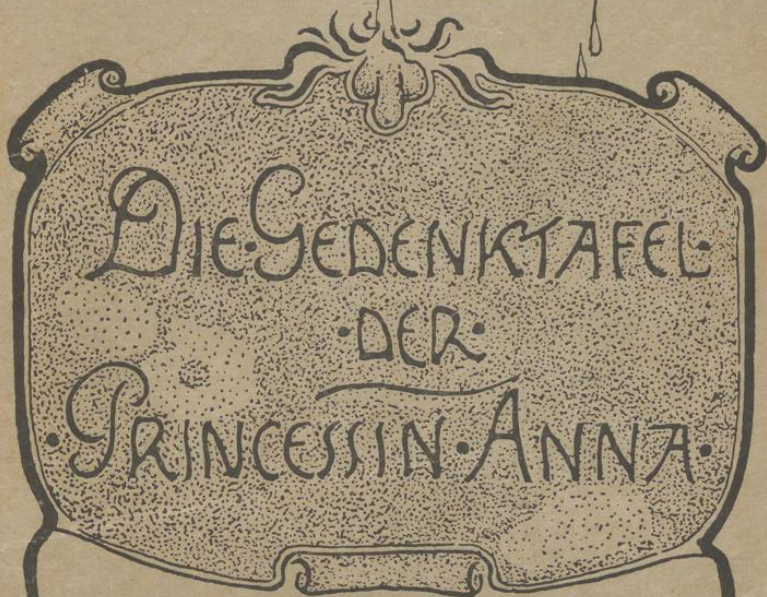 DIE·GEDENKTAFEL·
·DER·
·PRINCESSIN·ANNA·